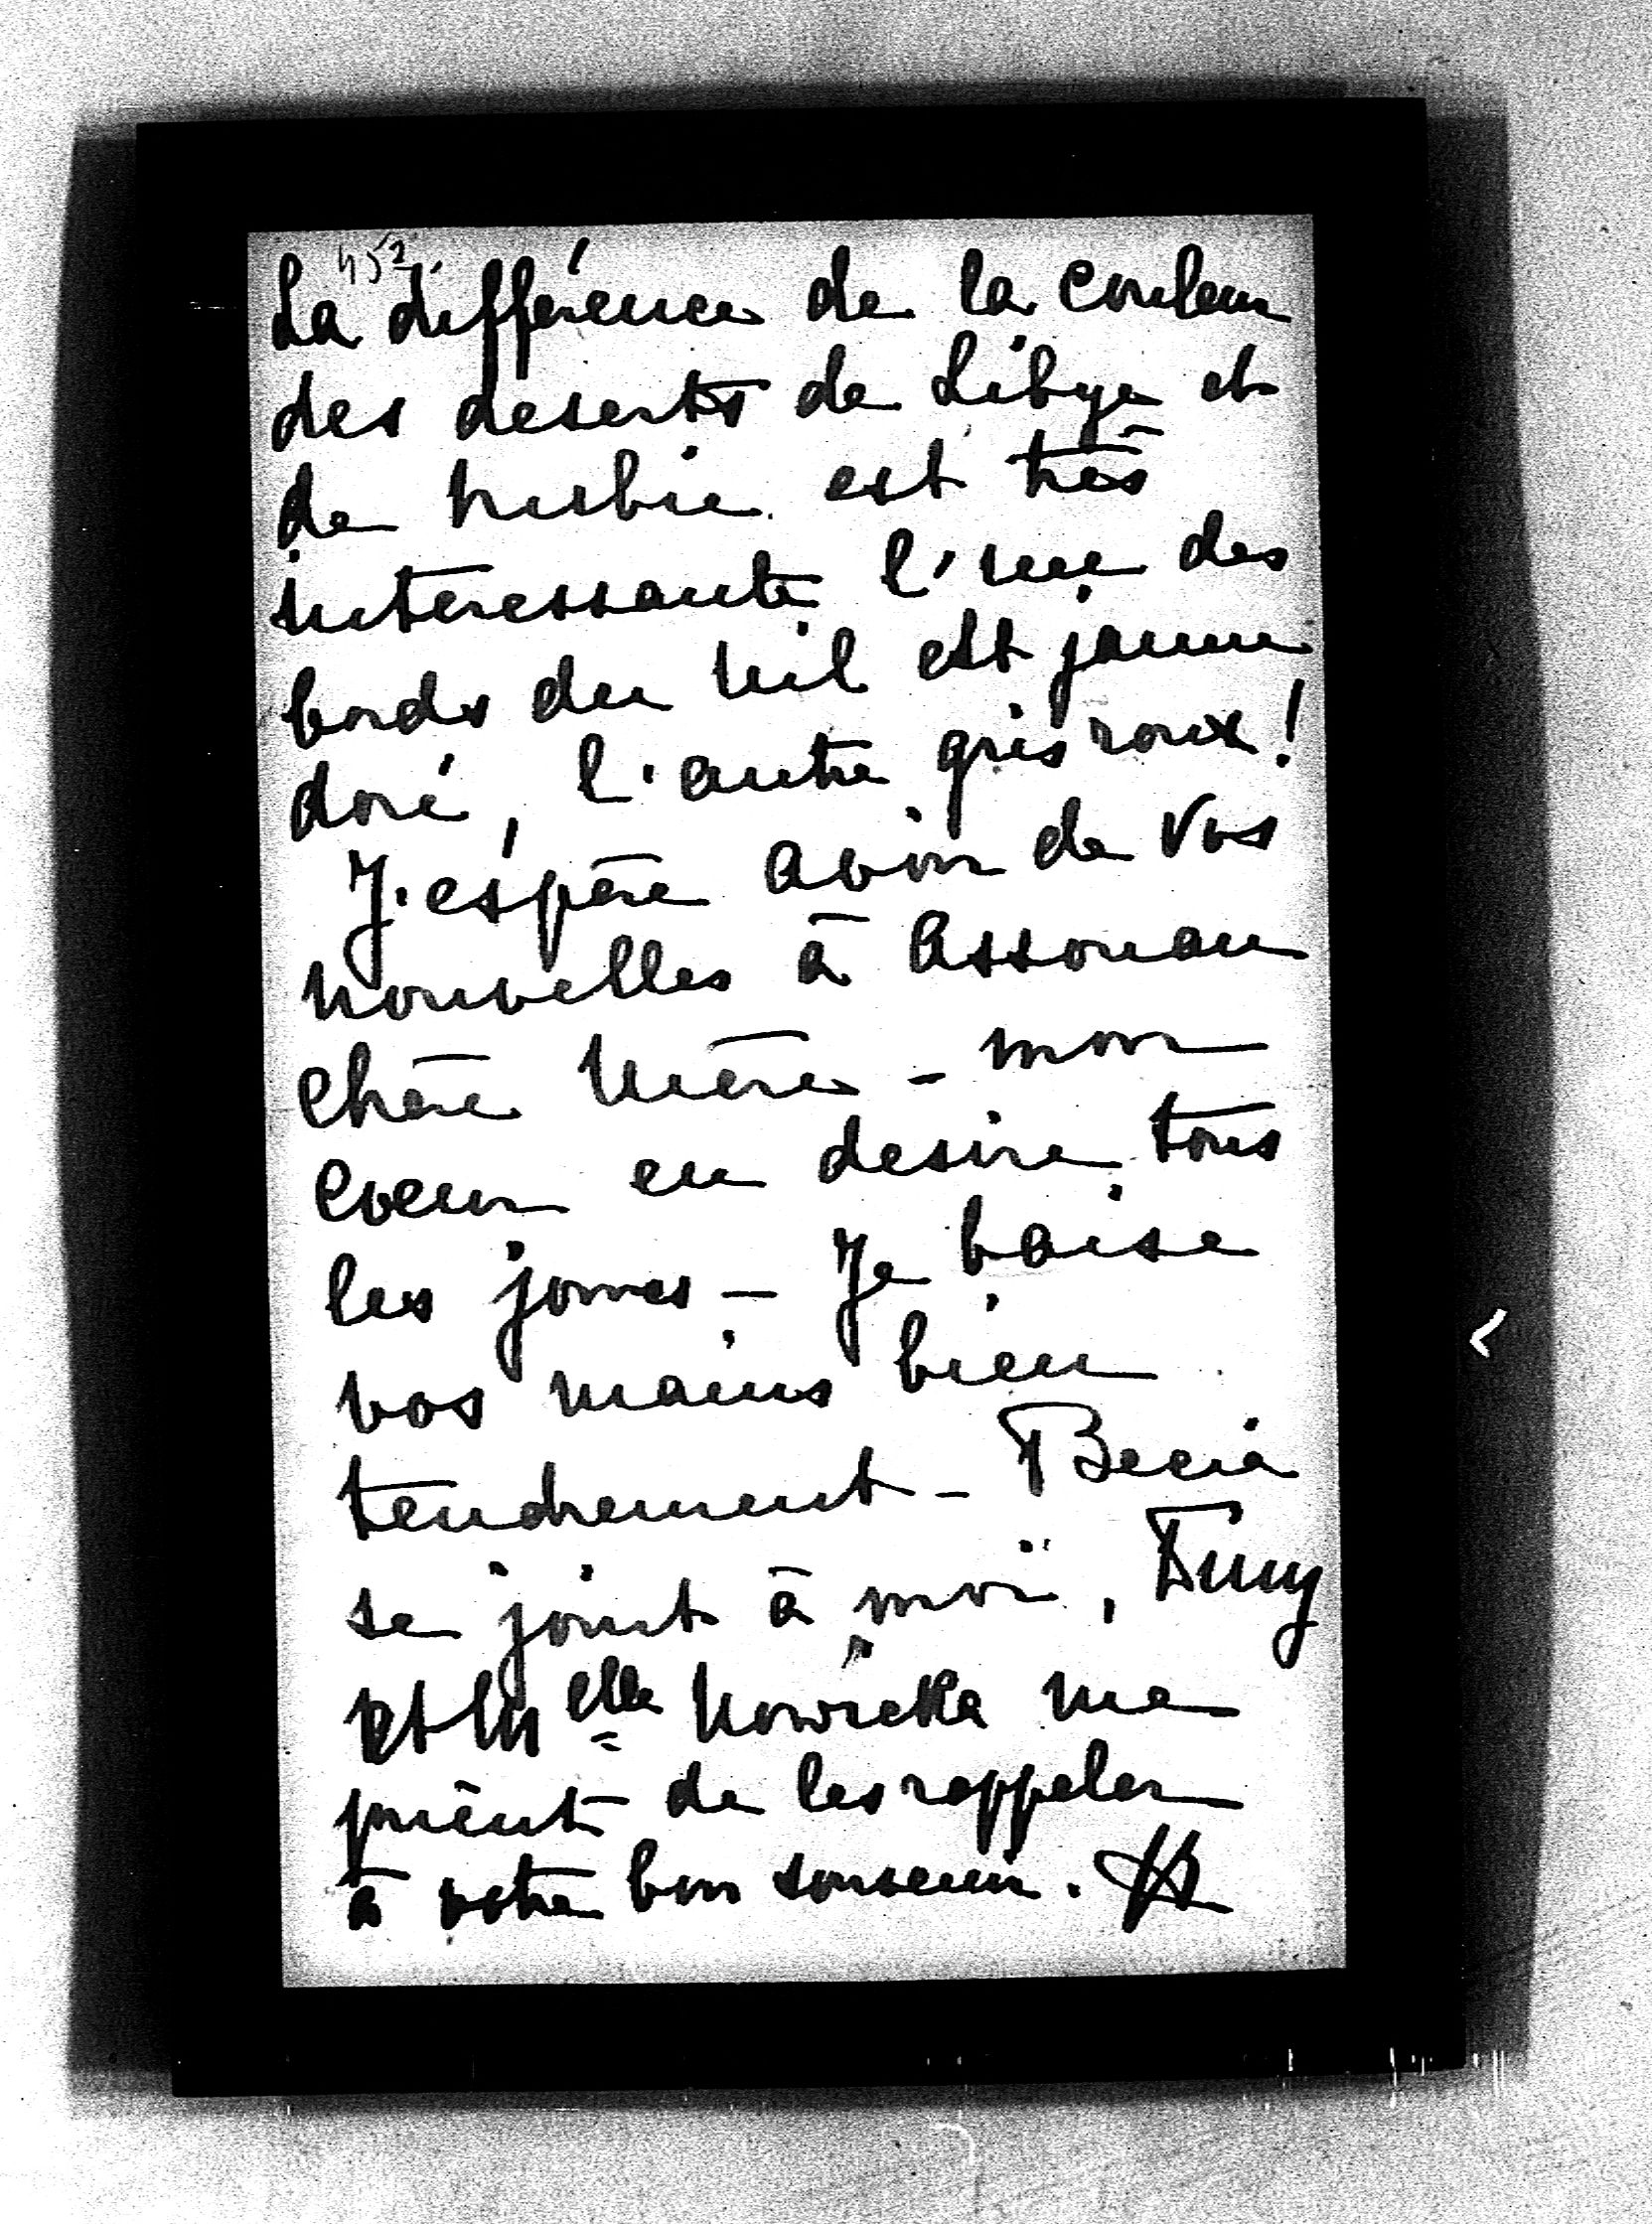 452
La différence de la couleur
des deserts de Libye et
de Nubie est très
interessante l'une des
bords du Nil est jaune
doré, l'autre gris roux!
J'espère avoir de Vos
nouvelles à Assouan
Chère Mère - mon
Coeur en desire tous
les jours - Je baise
vos mains bien
tendrement -
se joint à moi,
et Melle Nowicka me
prient de les rappeler
à votre bon souvenir.